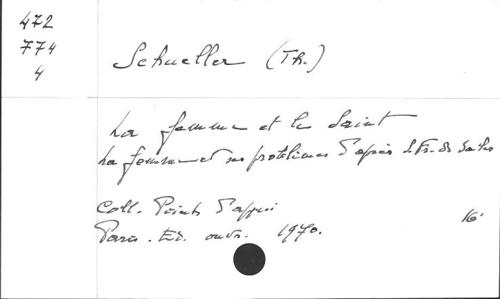 472
774
4
Schueller (Th.)
La femme et le Saint
La femme et ses problèmes d'après S. Fr. de Sales
Coll. Points d'appui
Paris. Ed. ouvr. 1970. 16°